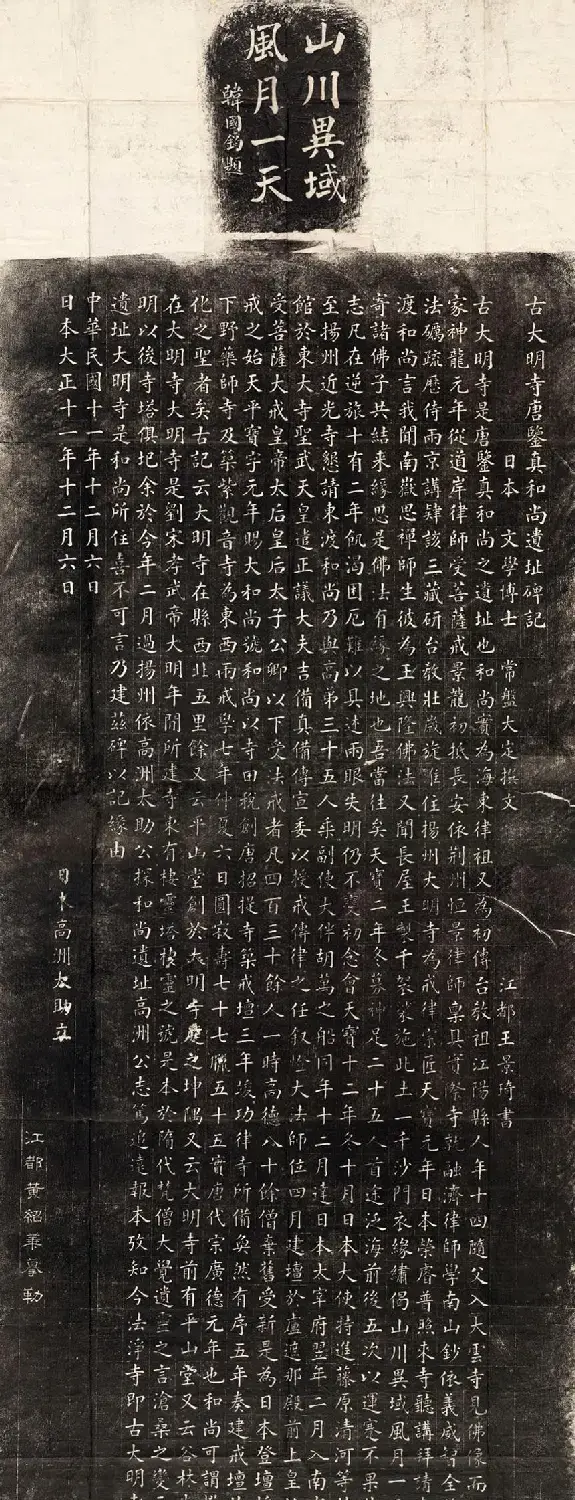 山川異域
風月一天
韓國鈞題
古大明寺唐鑒真和尚遺址碑記
日本 文學博士 常盤大定撰文 江都王景琦書
古大明寺是唐鑒真和尚之遺址也和尚實為海東律祖又為初傳台教祖江陽縣人年十四隨父入大雲寺見佛像而
家神龍元年從道岸律師受菩薩戒景龍初抵長安依荊州恒景律師稟具實際寺乾融濟律師學南山鈔依義威智全
法礪疏歷侍兩京講肄該三藏研台教壯歲旋淮住揚州大明寺為戒律宗匠天寶元年日本榮睿普照來寺聽講拜請
渡和尚言我聞南嶽思禪師生彼為王興隆佛法又聞長屋王製千袈裟施此土一千沙門衣緣繡偈山川異域風月一
寄諸佛子共結来緣思是佛法有緣之地也吾當往矣天寶二年冬募神足二十五人首途泛海前後五次以運蹇不果
志凡在逆旅十有二年飢渴困厄難以具述兩眼失明仍不变初念會天寶十二年冬十月日本大使特進藤原清河等
至揚州近光寺懇請東渡和尚乃與高弟三十五人乘副使大伴胡萬之船同年十二月達日本太宰府翌年二月入南
館於東大寺聖武天皇遣正議大夫吉備真備傳宣委以授戒傳律之任叙燈大法師位四月建壇於盧遮那殿前上皇
受菩薩大戒皇帝太后皇后太子公卿以下受法戒者凡四百三十餘人一時高德八十餘僧棄舊受新是為日本登壇
戒之始天平寶字元年賜大和尚號和尚以寺田税創唐招提寺築戒壇三年竣功律寺所備奐然有序五年奏建戒壇
下野藥師寺及築紫觀音寺為東西兩戒學七年仲夏六日圓寂壽七十七臘五十五實唐代宗廣德元年也和尚可謂
化之聖者矣古記云大明寺在縣西北五里餘又云平山堂創於大明寺庭之坤隅又云大明寺前有平山堂又云谷林
在大明寺大明寺是劉宋孝武帝大明年間所建寺東有棲靈塔棲靈之號是本於隋代梵僧大覺遺靈之言滄桑之變
明以後寺塔俱圯余於今年二月過揚州依高洲太助公探和尚遺址高洲公志篤追遠報本攷知今法淨寺即古大明
遺址大明寺是和尚所住喜不可言乃建茲碑以記緣由
中華民國十一年十二月六日
日本大正十一年十二月六日 日本高洲太助立
江都黃紹華勒